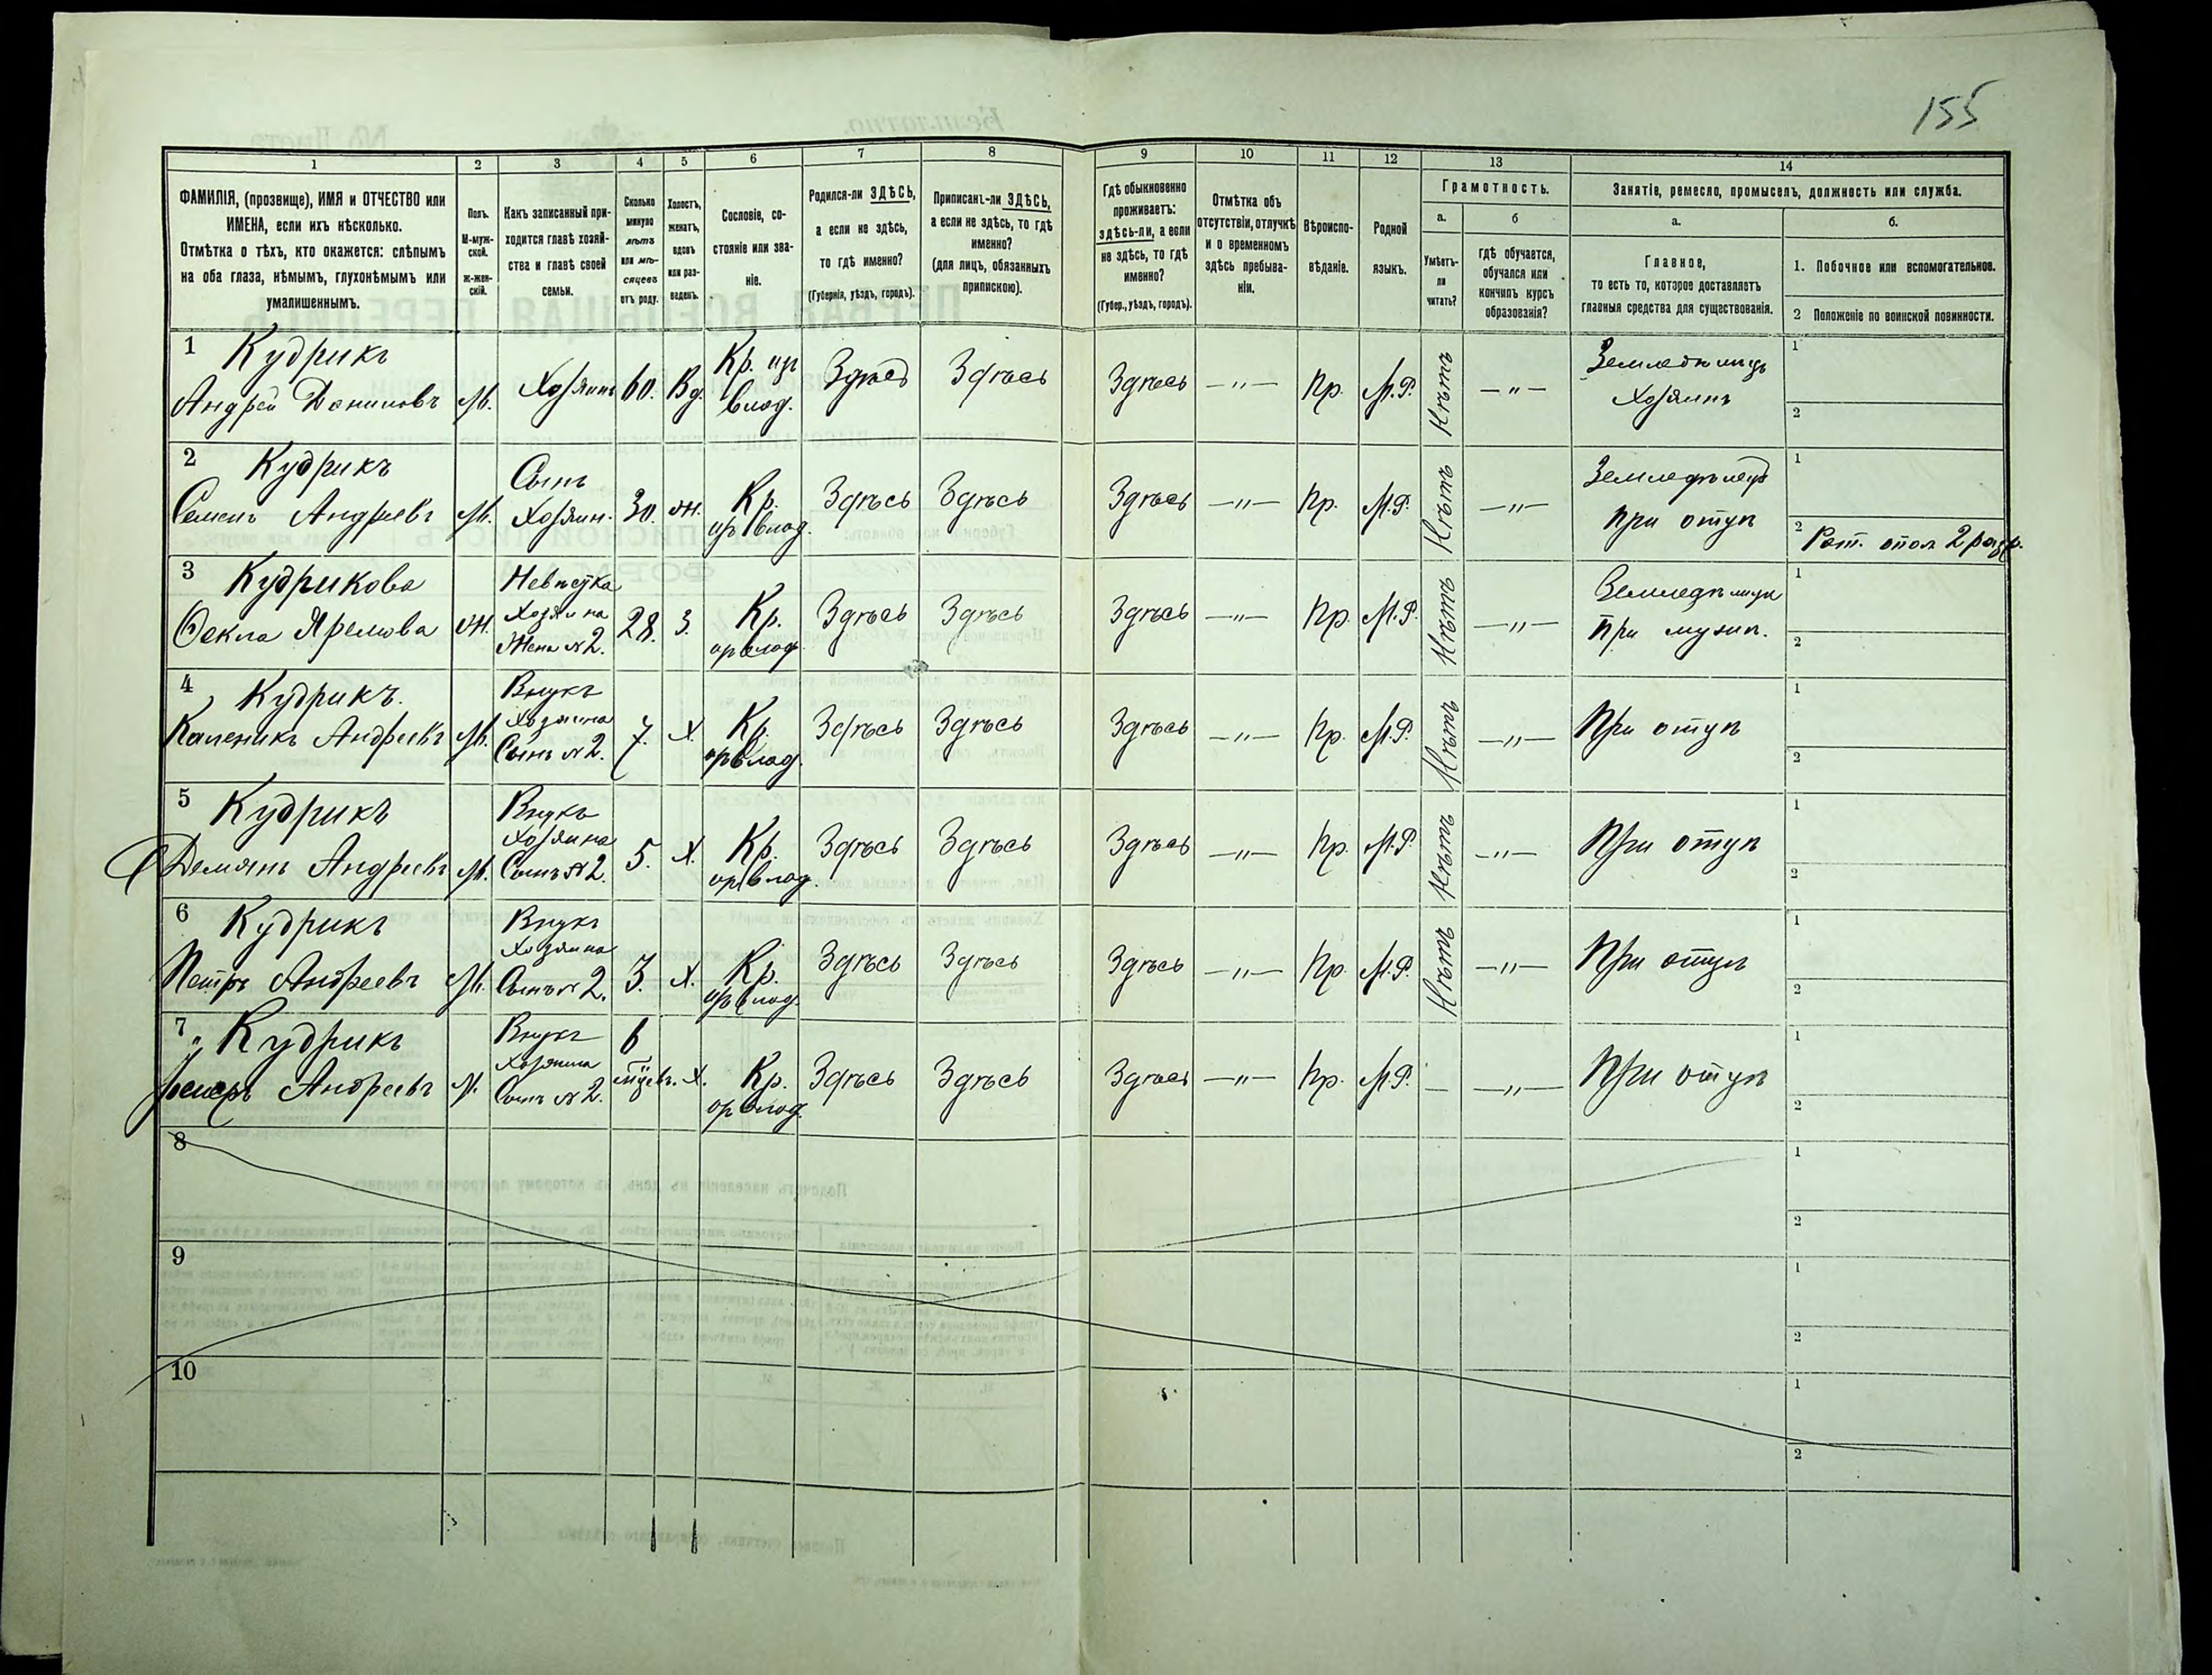 155
1 2 3 4 5 6 7 8 9 10 11 12 13 14
ФАМИЛІЯ, (прозвище), ИМЯ и ОТЧЕСТВО или
ИМЕНА, если ихъ нѣсколько.
Отмѣтка о тѣхъ, кто окажется: слѣпымъ
на оба глаза, нѣмымъ, глухонѣмымъ или
умалишеннымъ.
Полъ.
М-муж-
ской.
ж-жен-
скій.
Какъ записанный при-
ходится главѣ хозяй-
ства и главѣ своей
семьи.
Сколько
минуло
лѣтъ
или мѣ-
сяцевъ
отъ роду.
Холостъ,
женатъ,
вдовъ
или раз-
веденъ.
Сословіе, со-
стояніе или зва-
ніе.
Родился-ли ЗДѢСЬ,
а если не здѣсь,
то гдѣ именно?
(Губернія, уѣздъ, городъ).
Приписанъ-ли ЗДѢСЬ,
а если не здѣсь, то гдѣ
именно?
(для лицъ, обязанныхъ
припискою).
Гдѣ обыкновенно
проживаетъ:
здѣсь-ли, а если
не здѣсь, то гдѣ
именно?
(Губер., уѣздъ, городъ).
Отмѣтка объ
отсутствіи, отлучкѣ
и о временномъ
здѣсь пребыва-
ніи.
Вѣроиспо-
вѣданіе.
Родной
языкъ.
Грамотность.
а.
Умѣетъ-
ли
читать?
б
гдѣ обучается,
обучался или
кончилъ курсъ
образованія?
Занятіе, ремесло, промыселъ, должность или служба.
а.
Главное,
то есть то, которое доставляетъ
главныя средства для существованія.
б.
1. Побочное или вспомогательное.
2 Положеніе по воинской повинности.
1 Кудрикъ
Андрей Даниловъ М. Хозяинъ 60. Вд. Кр. из влад. Здѣсь Здѣсь Здѣсь —"— Пр. М.Р. Нѣтъ —"— Земледѣлецъ Хозяинъ
1
2
2 Кудрикъ
Семенъ Андреевъ М. Сынъ Хозяин. 30. Ж. Кр. влад. Здѣсь Здѣсь Здѣсь —"— Пр. М.Р. Нѣтъ —"— При отцѣ
1
2 Рат. опол 2 разр.
3 Кудрикова
Фекла Яремова Ж. Невѣстка Хозяина Жена № 2. 28. З. Кр. влад. Здѣсь Здѣсь Здѣсь —"— Пр. М.Р. Нѣтъ —"— При мужѣ.
1
2
4 Кудрикъ.
Каленикъ Андреевъ М. Внукъ Хозяина Сынъ № 2. 7. Х. Кр. влад. Здѣсь Здѣсь Здѣсь —"— Пр. М.Р. Нѣтъ —"— При отцѣ
1
2
5 Кудрикъ
Демянъ Андреевъ М. Внукъ Хозяина Сынъ № 2. 5. Х. Кр. влад. Здѣсь Здѣсь Здѣсь —"— Пр. М.Р. Нѣтъ —"— При отцѣ
1
2
6 Кудрикъ
Петръ Андреевъ М. Внукъ Хозяина Сынъ № 2. 3. Х. Кр. влад. Здѣсь Здѣсь Здѣсь —"— Пр. М.Р. Нѣтъ —"— При отцѣ
1
2
7 Кудрикъ
Андреевъ М. Внукъ Хозяина Сынъ № 2. 6 Х. Кр. влад. Здѣсь Здѣсь Здѣсь —"— Пр. М.Р. — —"— При отцѣ
1
2
8
1
2
9
1
2
10
1
2